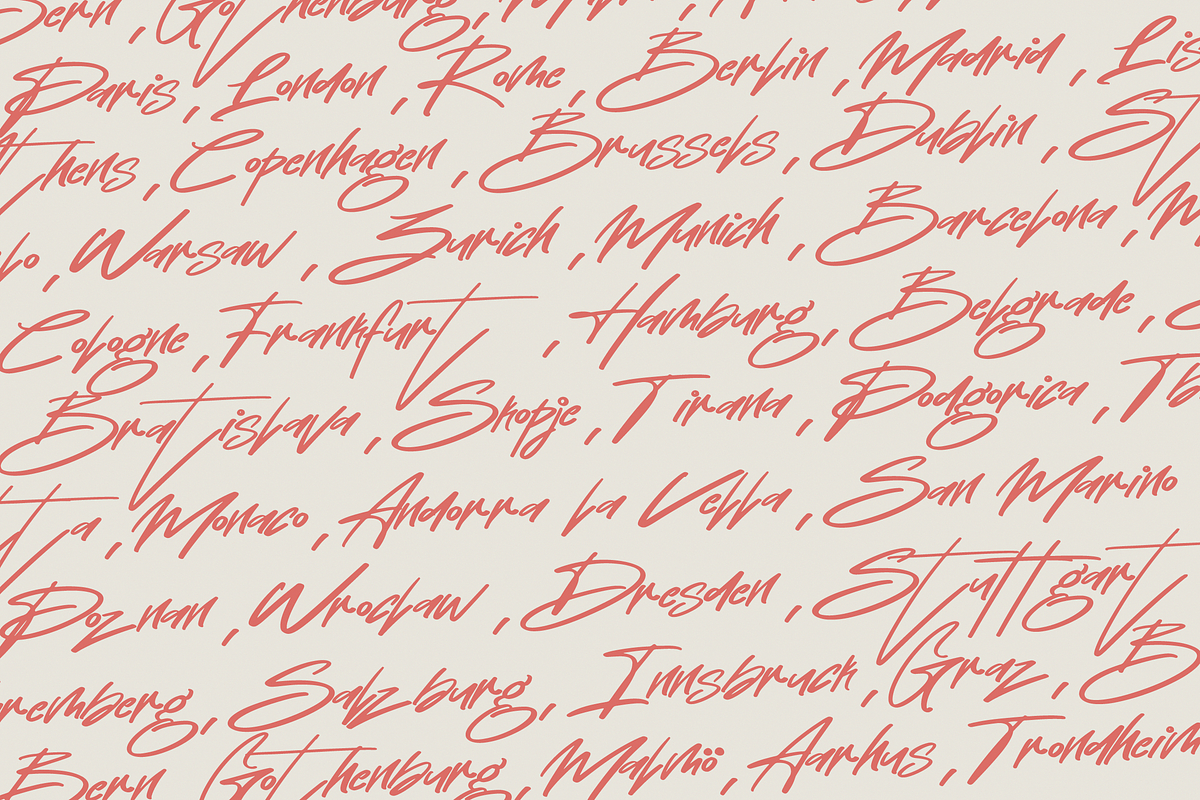 Bern , Gothenburg,
Paris , London , Rome , Berlin , Madrid , Lis
thens , Copenhagen , Brussels , Dublin , St
lo , Warsaw , Zurich , Munich , Barcelona , M
Cologne , Frankfurt , Hamburg , Belgrade ,
Bratislava , Skopje , Tirana , Podgorica , Tb
ta , Monaco , Andorra la Vella , San Marino
Poznan , Wroclaw , Dresden , Stuttgart
remberg , Salzburg , Innsbruck , Graz , B
Bern Gothenburg , Malmö , Aarhus , Trondheim